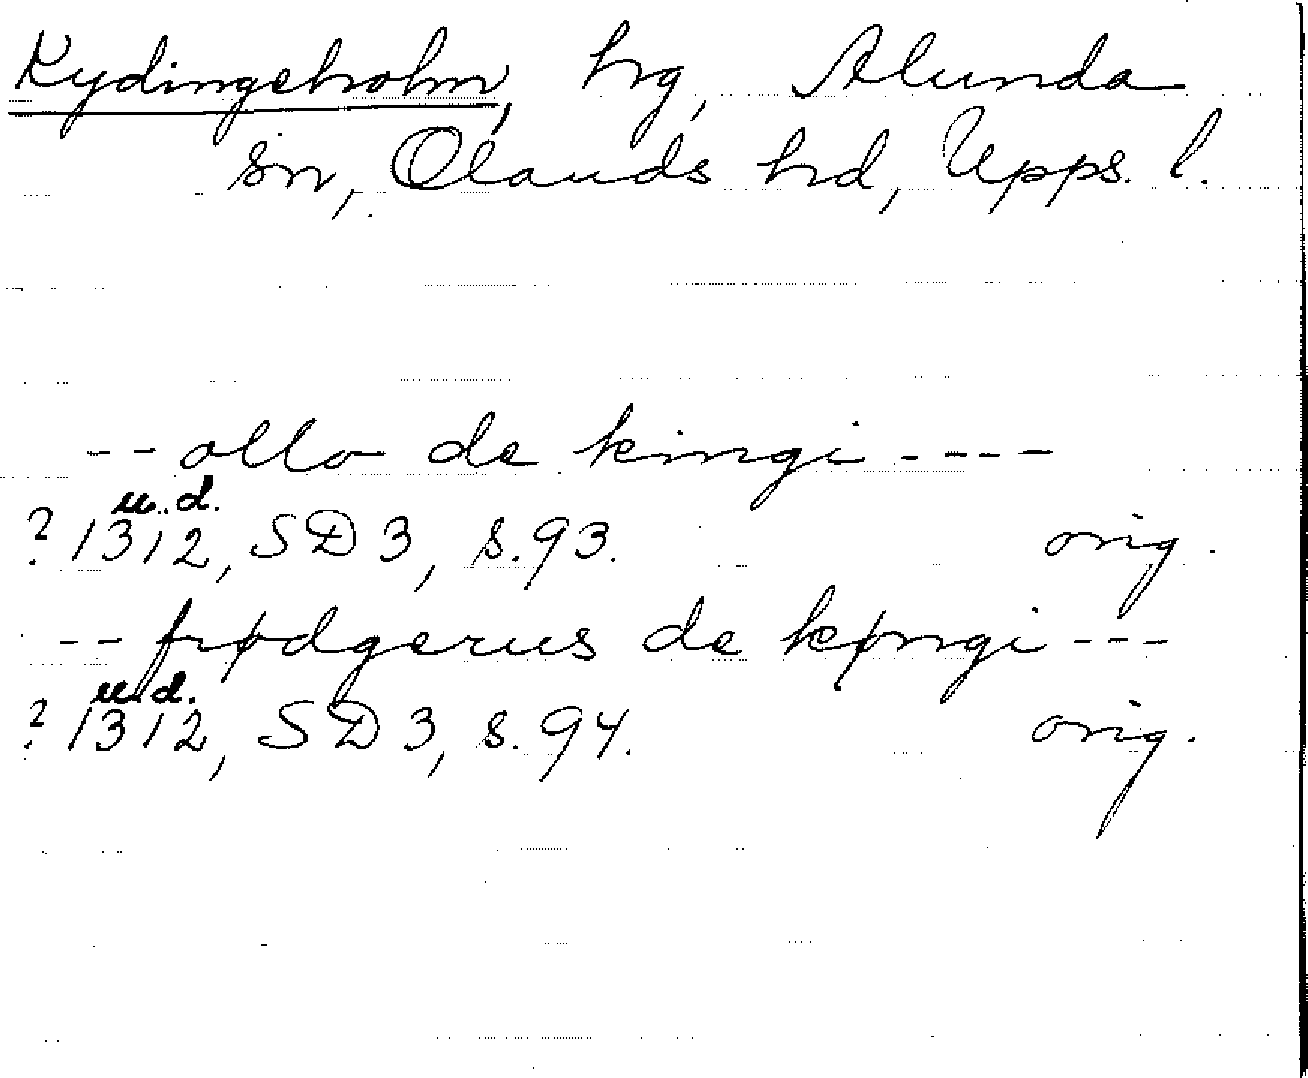 Kydingeholm, hg, Alunda
sn, Olands hd, Upps. l.
-- ollo de kingi ----
u.d.
? 1312, SD 3, s. 93. orig.
-- frødgerus de køngi ---
u.d.
? 1312, SD 3, s. 94. orig.